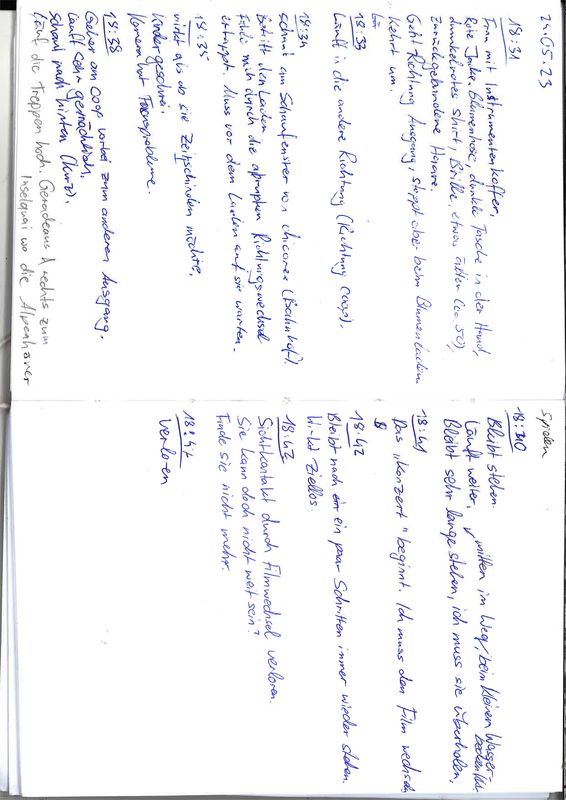 24.05.23
18:31
Frau mit Instrumentenkoffer,
Rote Jacke, Blumenhose, dunkle Tasche in der Hand,
dunkelrotes shirt, Brille, etwas älter (ca. 50),
zurückgebundene Haare
Geht Richtung Ausgang, stoppt aber beim Blumenladen
Kehrt um.
18:33
Läuft in die andere Richtung (Richtung Coop).
18:34
Schaut am Schaufenster von chicoree (Bahnhof).
Betritt den Laden
Fühle mich durch die abrupten Richtungswechsel
ertappt. Muss vor dem Laden auf sie warten.
18:35
wirkt als ob sie Zeit schinden möchte.
Kindergeschrei
Kamera hat Fokusprobleme.
18:38
am Coop vorbei zum anderen Ausgang.
Läuft sehr gemächlich.
Schaut nach hinten (kurz).
Läuft die Treppen hoch. Geradeaus & rechts zum
Inseliquai wo die Alpenhörner
spielen
18:40
Bleibt stehen
Läuft weiter, mitten im Weg, beim kleinen Wasser-
Bleibt sehr lange stehen, ich muss sie überholen.
18:41
Das „Konzert" beginnt. Ich muss den Film wechseln
18:42
Bleibt nach ein paar Schritten immer wieder stehen.
Wirkt Ziellos.
18:42
Sichtkontakt durch Filmwechsel verloren.
Sie kann doch nicht weit sein?
Finde sie nicht mehr.
18:47
verloren